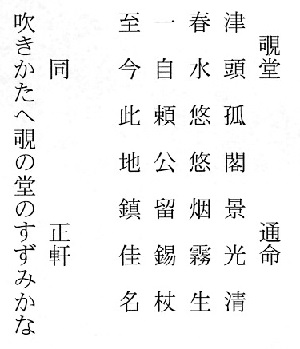 覗堂　通命
津頭孤閣景光清
春水悠悠烟霧生
一自頼公留錫杖
至今此地鎮佳名
同　正軒
吹きかたへ覗の堂のすずみかな